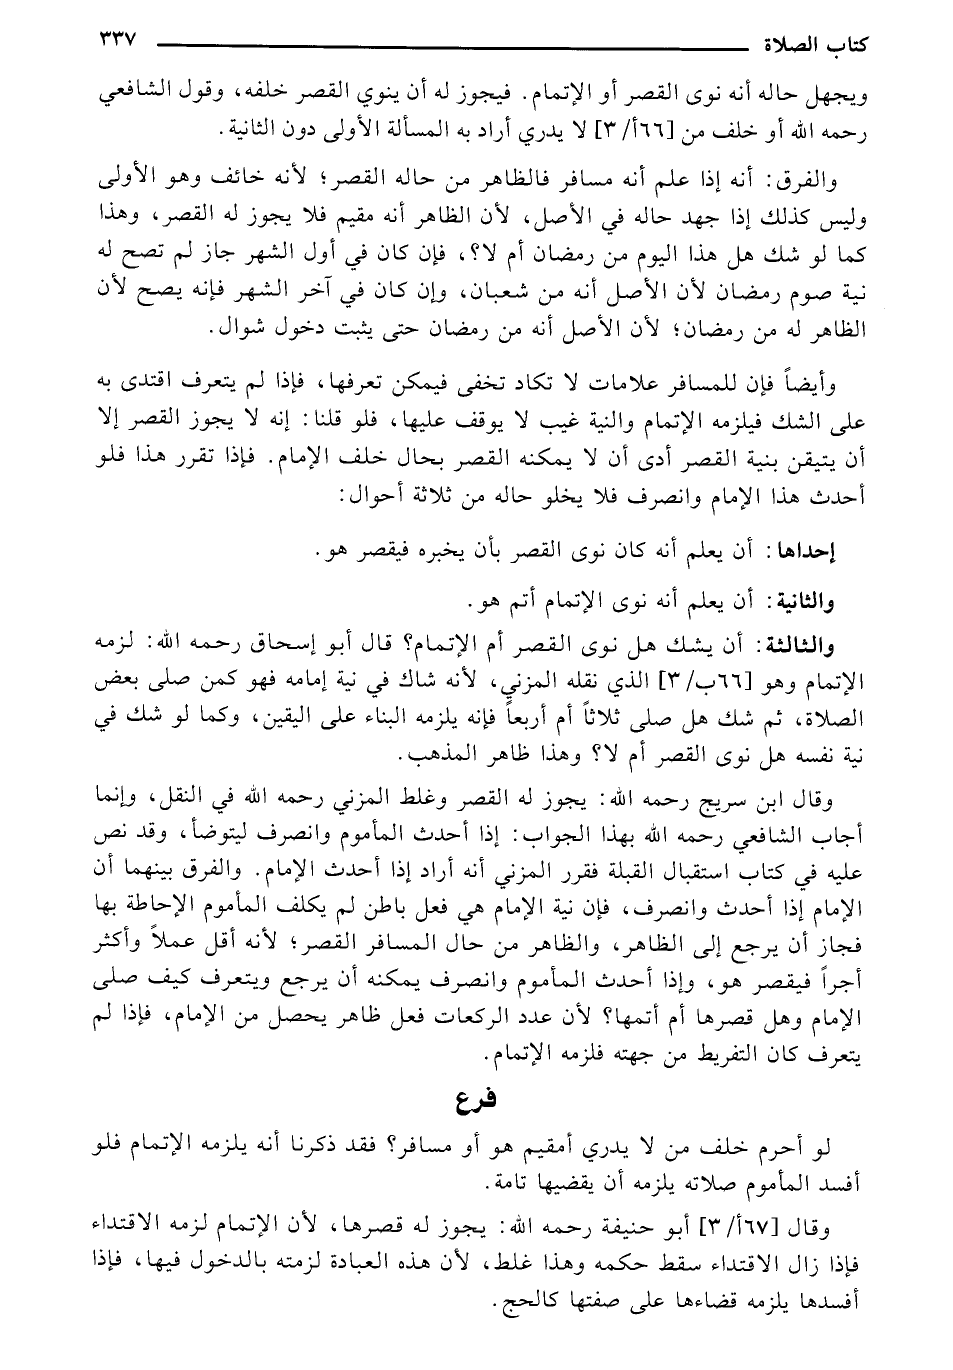 كتاب الصلاة ٣٣٧
ويجهل حاله أنه نوى القصر أو الإتمام. فيجوز له أن ينوي القصر خلفه، وقول الشافعي
رحمه الله أو خلف من [٦٦أ/ ٣] لا يدري أراد به المسألة الأولى دون الثانية.
والفرق: أنه إذا علم أنه مسافر فالظاهر من حاله القصر؛ لأنه خائف وهو الأولى
وليس كذلك إذا جهد حاله في الأصل، لأن الظاهر أنه مقيم فلا يجوز له القصر، وهذا
كما لو شك هل هذا اليوم من رمضان أم لا؟، فإن كان في أول الشهر جاز لم تصح له
نية صوم رمضان لأن الأصل أنه من شعبان، وإن كان في آخر الشهر فإنه يصح لأن
الظاهر له من رمضان؛ لأن الأصل أنه من رمضان حتى يثبت دخول شوال.
وأيضاً فإن للمسافر علامات لا تكاد تخفى فيمكن تعرفها، فإذا لم يتعرف اقتدى به
على الشك فيلزمه الإتمام والنية غيب لا يوقف عليها، فلو قلنا: إنه لا يجوز القصر إلا
أن يتيقن بنية القصر أدى أن لا يمكنه القصر بحال خلف الإمام. فإذا تقرر هذا فلو
أحدث هذا الإمام وانصرف فلا يخلو حاله من ثلاثة أحوال:
إحداها: أن يعلم أنه كان نوى القصر بأن يخبره فيقصر هو.
والثانية: أن يعلم أنه نوى الإتمام أتم هو.
والثالثة: أن يشك هل نوى القصر أم الإتمام؟ قال أبو إسحاق رحمه الله: لزمه
الإتمام وهو [٦٦ب/ ٣] الذي نقله المزني، لأنه شاك في نية إمامه فهو كمن صلى بعض
الصلاة، ثم شك هل صلى ثلاثاً أم أربعاً فإنه يلزمه البناء على اليقين، وكما لو شك في
نية نفسه هل نوى القصر أم لا؟ وهذا ظاهر المذهب.
وقال ابن سريج رحمه الله: يجوز له القصر وغلط المزني رحمه الله في النقل، وإنما
أجاب الشافعي رحمه الله بهذا الجواب: إذا أحدث المأموم وانصرف ليتوضأ، وقد نص
عليه في كتاب استقبال القبلة فقرر المزني أنه أراد إذا أحدث الإمام. والفرق بينهما أن
الإمام إذا أحدث وانصرف، فإن نية الإمام هي فعل باطن لم يكلف المأموم الإحاطة بها
فجاز أن يرجع إلى الظاهر، والظاهر من حال المسافر القصر؛ لأنه أقل عملاً وأكثر
أجراً فيقصر هو، وإذا أحدث المأموم وانصرف يمكنه أن يرجع ويتعرف كيف صلى
الإمام وهل قصرها أم أتمها؟ لأن عدد الركعات فعل ظاهر يحصل من الإمام، فإذا لم
يتعرف كان التفريط من جهته فلزمه الإتمام.
فرع
لو أحرم خلف من لا يدري أمقيم هو أو مسافر؟ فقد ذكرنا أنه يلزمه الإتمام فلو
أفسد المأموم صلاته يلزمه أن يقضيها تامة.
وقال [٦٧أ/ ٣] أبو حنيفة رحمه الله: يجوز له قصرها، لأن الإتمام لزمه الاقتداء
فإذا زال الاقتداء سقط حكمه وهذا غلط، لأن هذه العبادة لزمته بالدخول فيها، فإذا
أفسدها يلزمه قضاءها على صفتها كالحج.